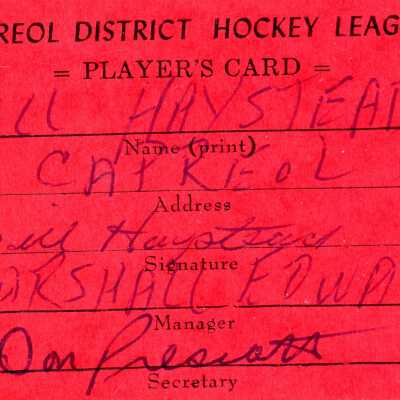 REOL DISTRICT HOCKEY LEAG
= PLAYER'S CARD =
LL HAYSTEAD
Name (print)
CAPREOL
Address
ill Haystead
Signature
ARSHALL EDWA
Manager
Don Prescott
Secretary